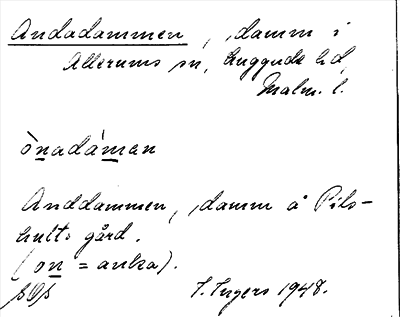 Andadammen, damm i
Allerums sn, Luggude hd,
Malm. l.
ònadámen
Anddammen, damm å Pils-
hults gård.
(on = anka).
I. Ingers 1948.